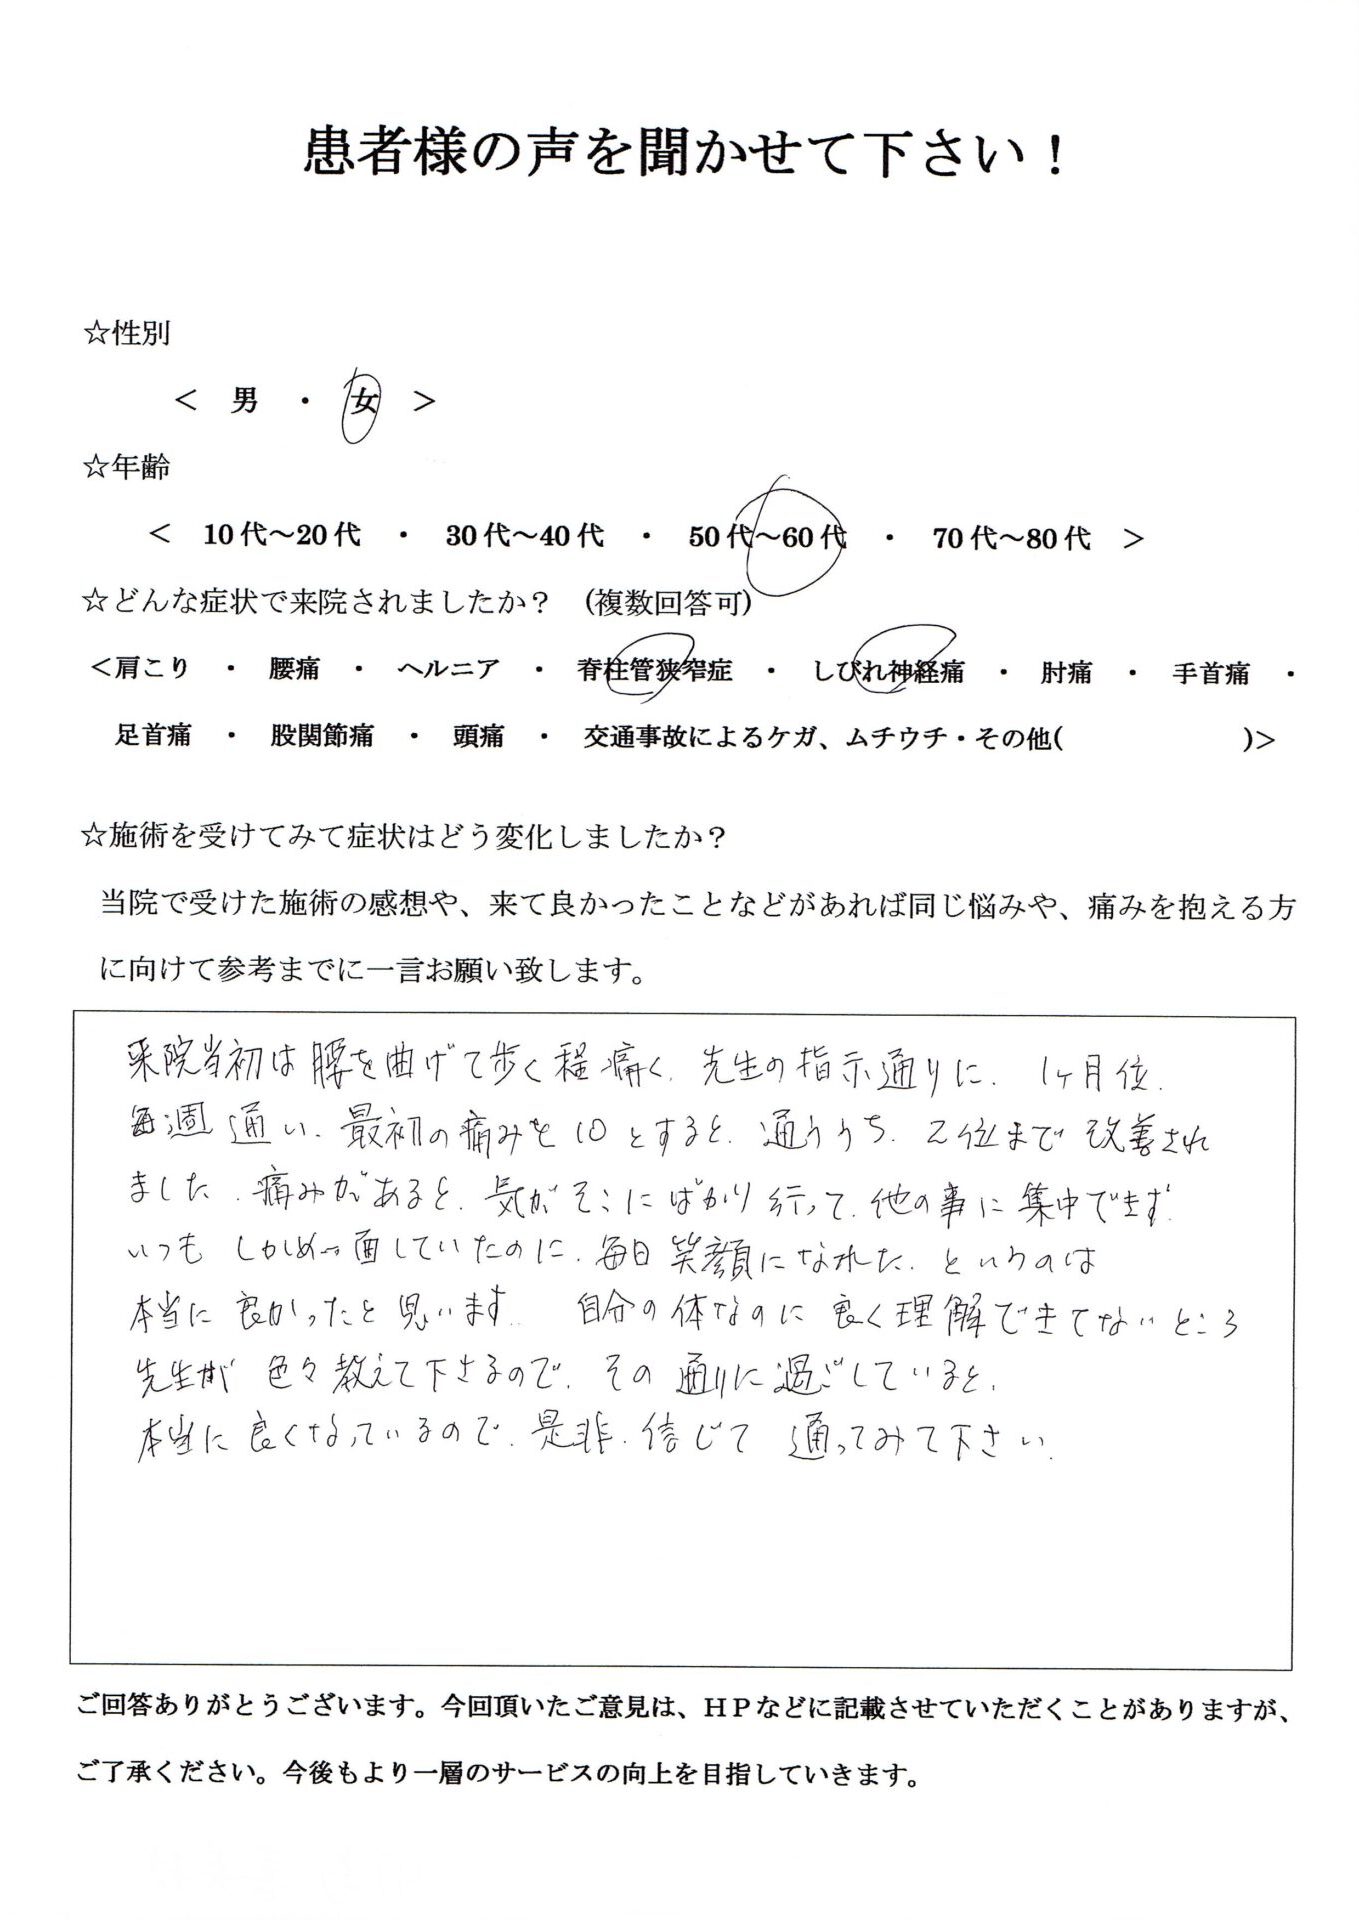 患者様の声を聞かせて下さい！
☆性別
＜　男　・　女　＞
☆年齢
＜　10代～20代　・　30代～40代　・　50代～60代　・　70代～80代　＞
☆どんな症状で来院されましたか？　(複数回答可)
＜肩こり　・　腰痛　・　ヘルニア　・　脊柱管狭窄症　・　しびれ神経痛　・　肘痛　・　手首痛　・
足首痛　・　股関節痛　・　頭痛　・　交通事故によるケガ、ムチウチ・その他(　　　　　　　)＞
☆施術を受けてみて症状はどう変化しましたか？
当院で受けた施術の感想や、来て良かったことなどがあれば同じ悩みや、痛みを抱える方
に向けて参考までに一言お願い致します。
来院当初は腰を曲げて歩く程痛く、先生の指示通りに、1ヶ月位、
毎週通い、最初の痛みを10とすると、通ううち、2位まで改善され
ました。痛みがあると、気がそこにばかり行って、他の事に集中できず、
いつもしかめっ面していたのに、毎日笑顔になれた、というのは
本当に良かったと思います。　自分の体なのに良く理解できてないところ
先生が色々教えて下さるので、その通りに過ごしていると、
本当に良くなっているので、是非、信じて通ってみて下さい。
ご回答ありがとうございます。今回頂いたご意見は、HPなどに記載させていただくことがありますが、
ご了承ください。今後もより一層のサービスの向上を目指していきます。